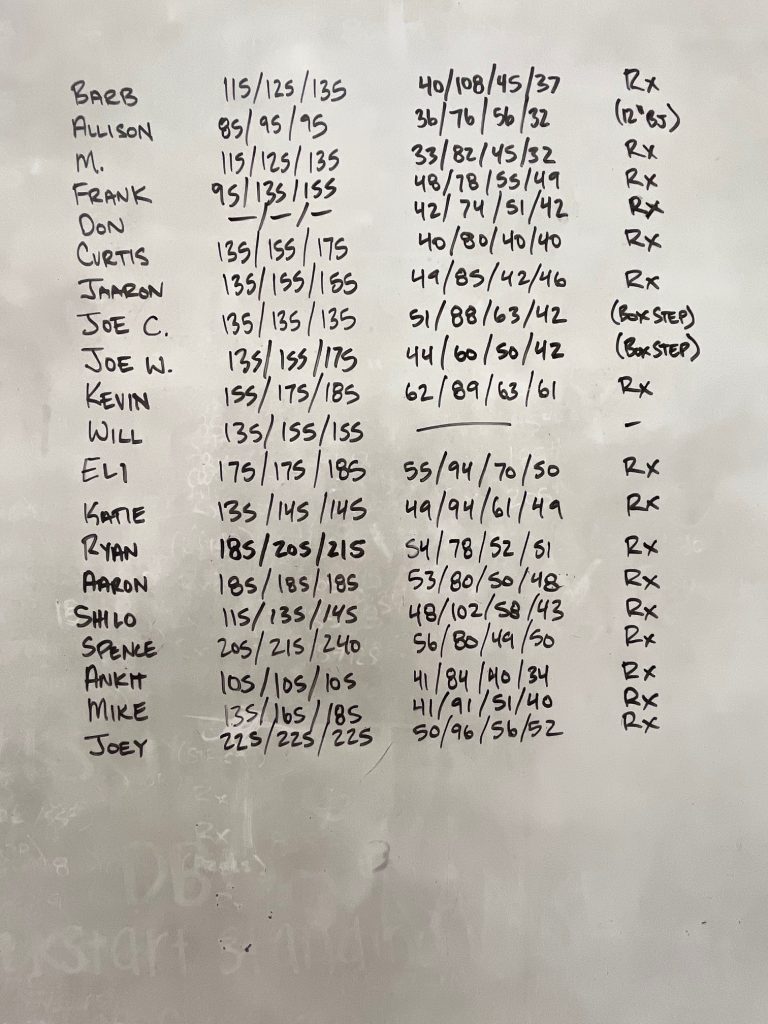 BARB 115/125/135 40/108/45/37 Rx
ALLISON 85/95/95 36/76/56/32 (12" BJ)
M. 115/125/135 33/82/45/32 Rx
FRANK 95/135/155 48/78/55/49 Rx
DON —/—/— 42/74/51/42 Rx
CURTIS 135/155/175 40/80/40/40 Rx
JAARON 135/155/155 49/85/42/46 Rx
JOE C. 135/135/135 51/88/63/42 (BOX STEP)
JOE W. 135/155/175 44/60/50/42 (BOX STEP)
KEVIN 155/175/185 62/89/63/61 Rx
WILL 135/155/155 — –
ELI 175/175/185 55/94/70/50 Rx
KATIE 135/145/145 49/94/61/49 Rx
RYAN 185/205/215 54/78/52/51 Rx
AARON 185/185/185 53/80/50/48 Rx
SHILO 115/135/145 48/102/58/43 Rx
SPENCE 205/215/240 56/80/49/50 Rx
ANKIT 105/105/105 41/84/40/34 Rx
MIKE 135/165/185 41/91/51/40 Rx
JOEY 225/225/225 50/96/56/52 Rx